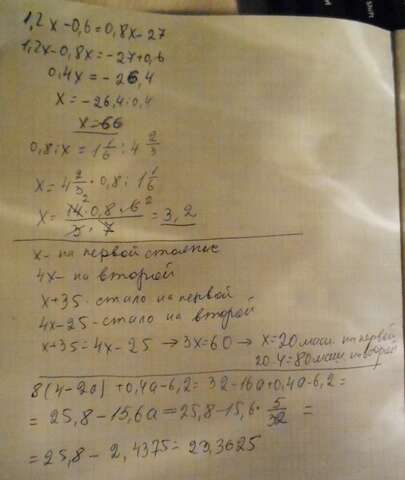 1,2x-0,6=0,8x-27
1,2x-0,8x=-27+0,6
0,4x=-26,4
x=-26,4:0,4
x=-66
0,8:x=1 1/6:4 2/3
x=4 2/3·0,8:1 1/6
x=14·0,8·6/3·7=3,2
x-на первой стоянке
4x-на второй
x+35-стало на первой
4x-25-стало на второй
x+35=4x-25→3x=60→x=20маш. на первой
20·4=80маш на второй
8(4-2a)+0,4a-6,2=32-16a+0,4a-6,2=
=25,8-15,6a=25,8-15,6·5/32=
=25,8-2,4375=23,3625
Shift